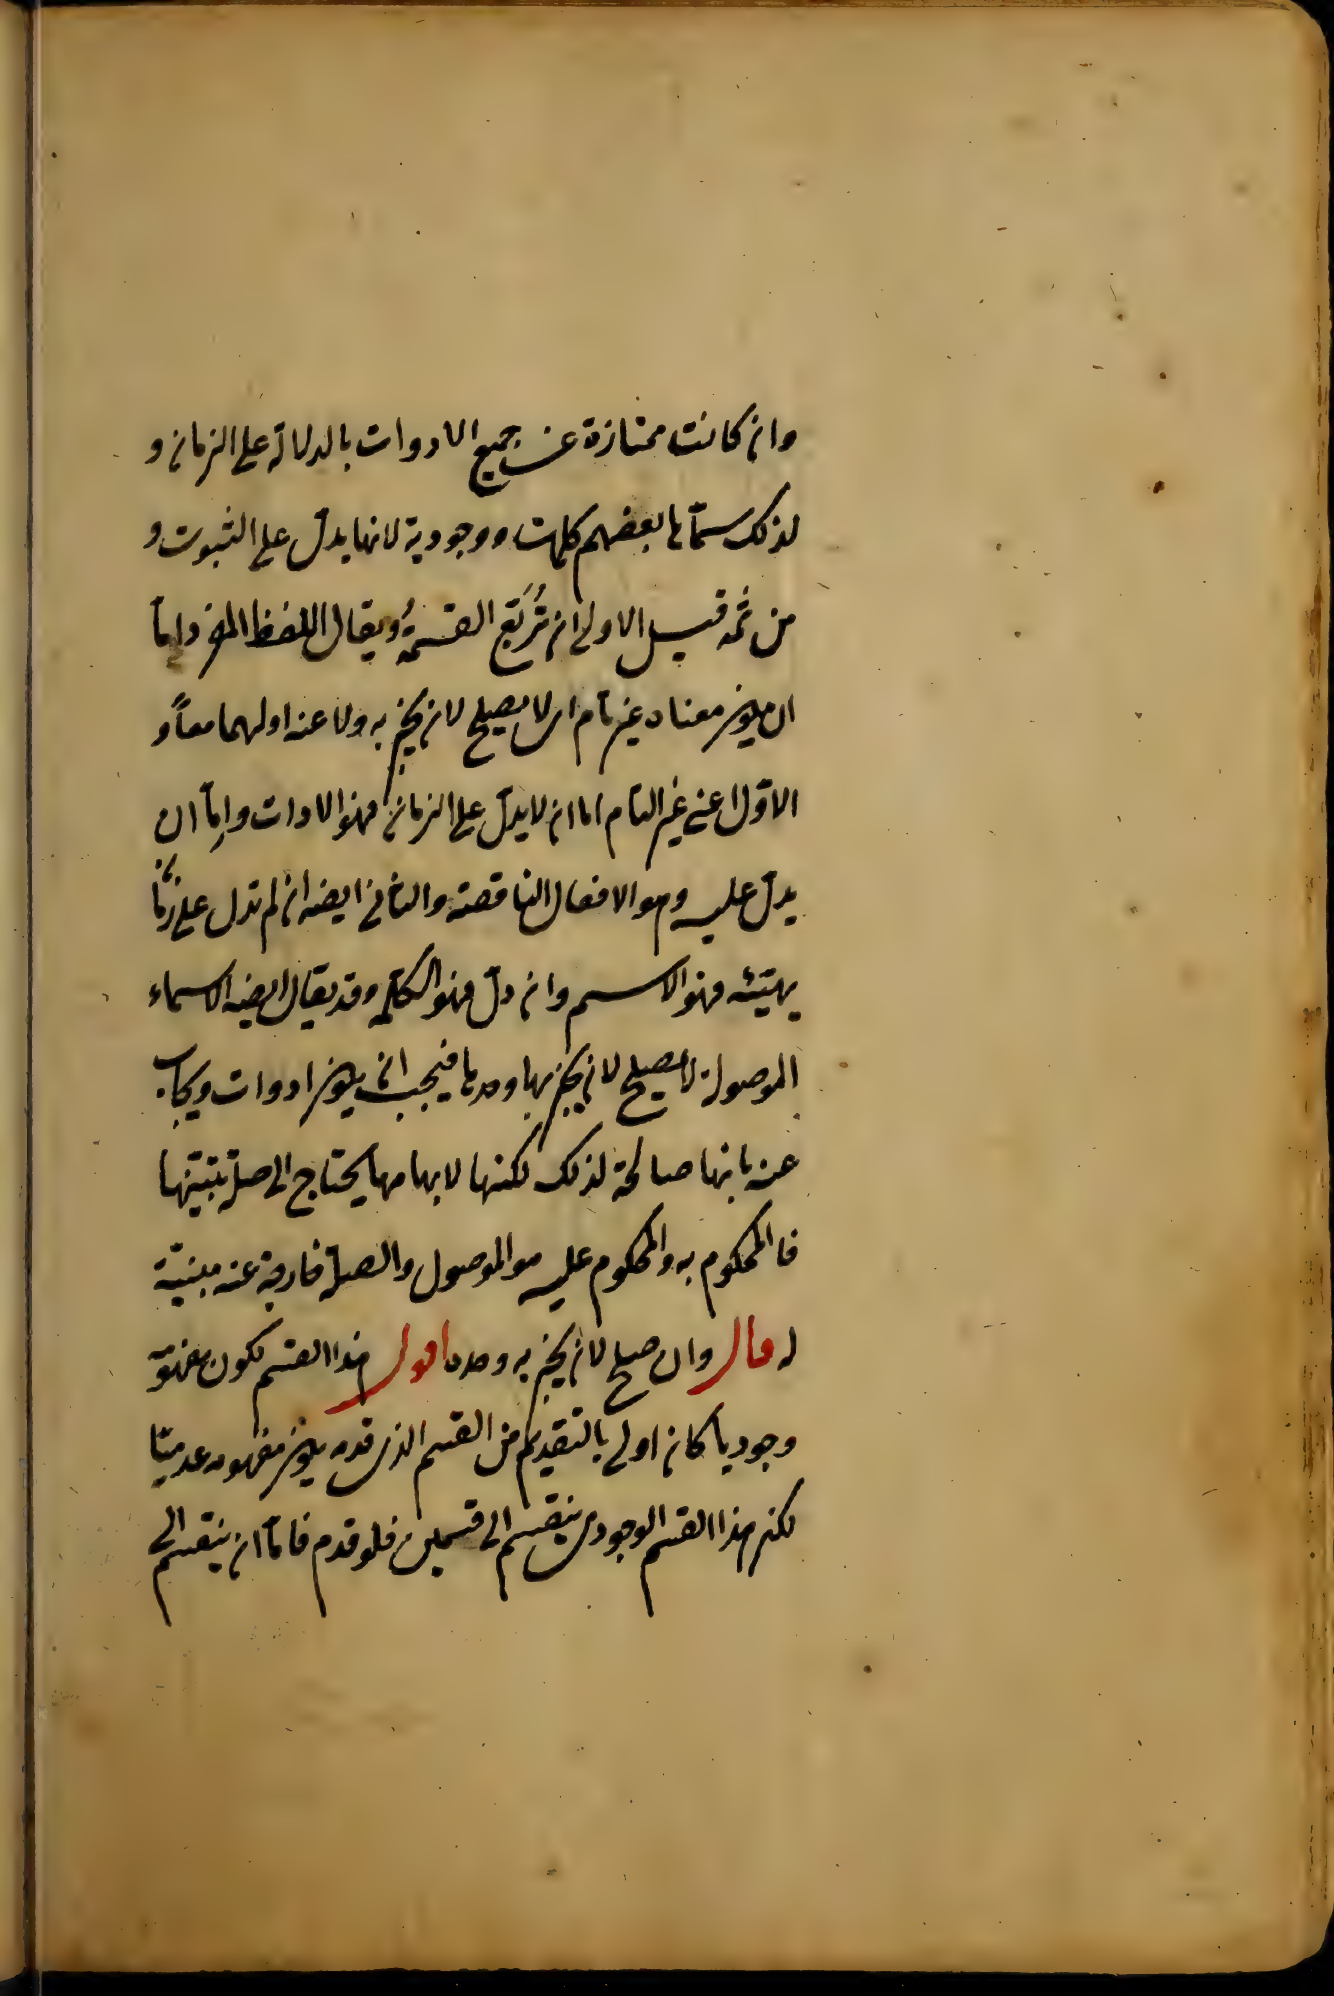 وان كانت ممتازة عن جميع الادوات بالدلالة على الزمان و
لذلك سمّاها بعضهم كلمات وجودية لانها يدلّ على الثبوت و
من ثمه قيل الاولى ان تُربَّع القسمةُ ويقال اللفظ المفرد امّا
ان يكون معناه غير تام اى لا يصلح لان يخبر به ولا عنه او لهما معاً و
الاوّل اعنى غير التام اما ان لا يدلّ على الزمان فهو الادات وامّا ان
يدلّ عليه وهو الافعال الناقصة والثانى ايضه ان لم تدل على زمان
بهيئته فهو الاسم وان دلّ فهو الكلمة وقد يقال ايضه الاسماء
الموصولة لا يصلح لان يخبر بها وحدها فيجب ان يكون ادوات ويجاب
عنه بانها صالحة لذلك لكنها لابهامها يحتاج الى صلة تبيّنها
فالمحكوم به والمحكوم عليه هو الموصول والصلة خارجة عنه مبنيّة
له قال وان صلح لان يخبر به وحده اقول هذا القسم لكون مفهومه
وجوديا كان اولى بالتقديم من القسم الذى قدمه يكون مفهومه عدميّا
لكن هذا القسم الوجودى ينقسم الى قسمين فلو قدم فامّا ان ينقسم الى